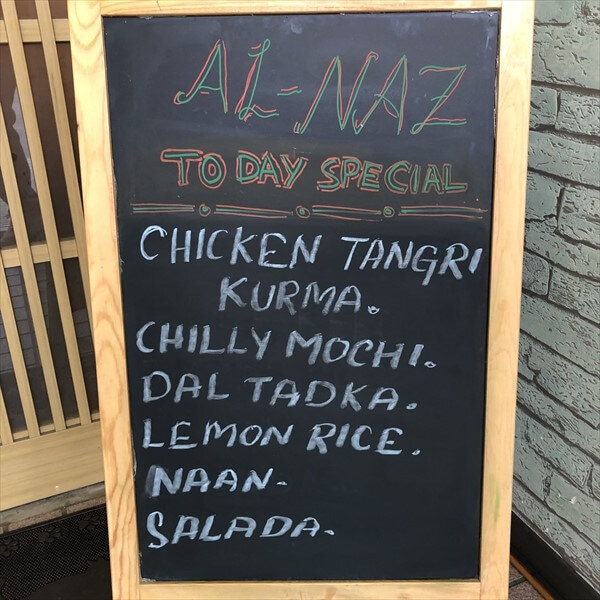 AL-NAZ
TO DAY SPECIAL
CHICKEN TANGRI
KURMA.
CHILLY MOCHI.
DAL TADKA.
LEMON RICE.
NAAN.
SALADA.